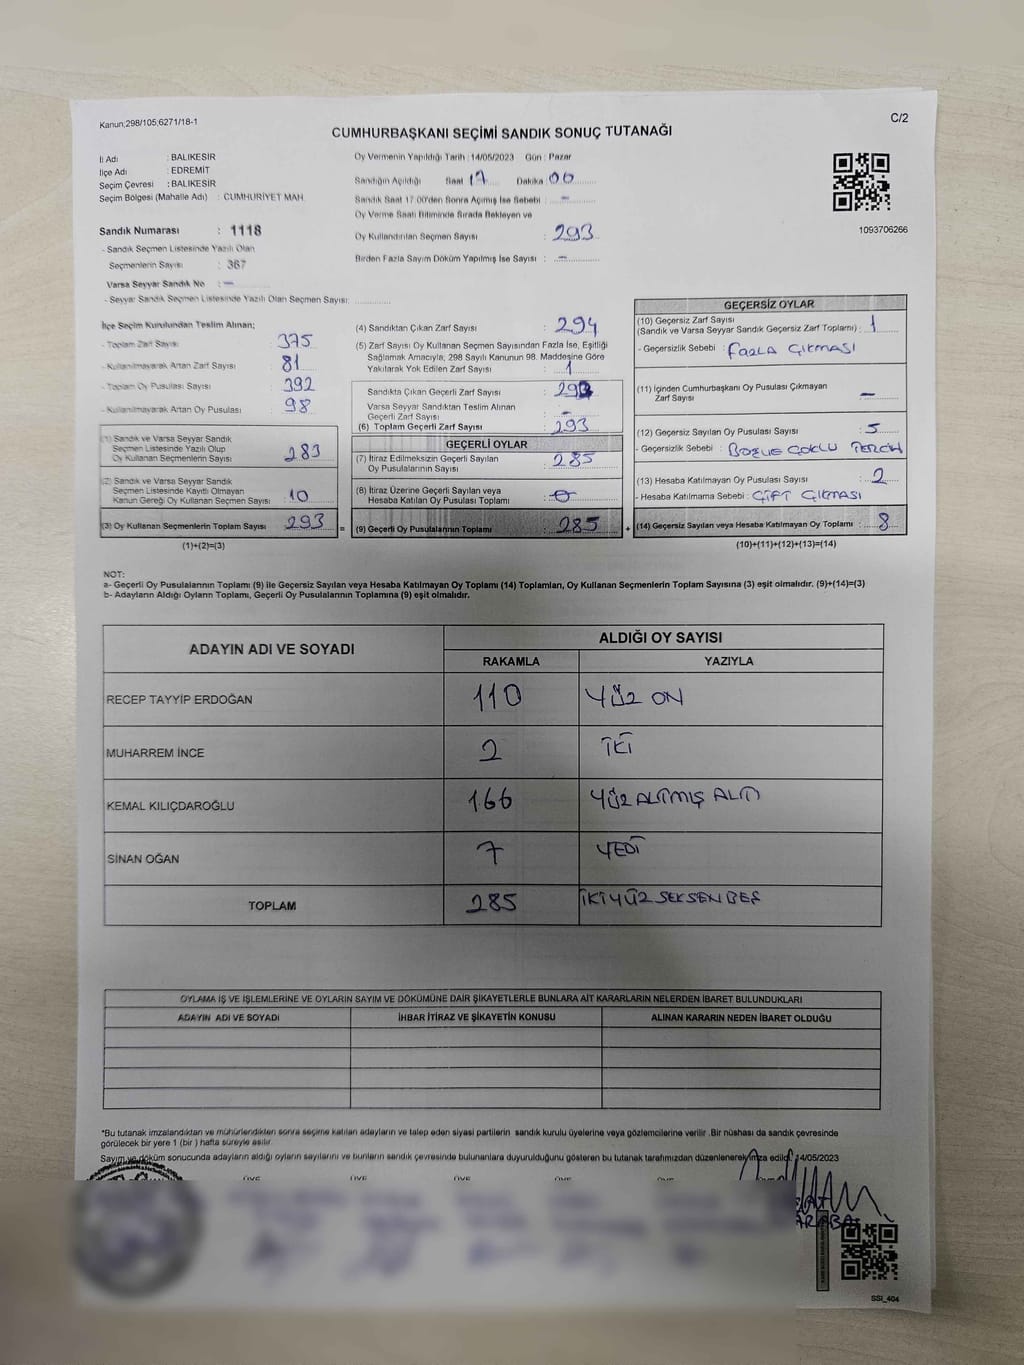 Kanun;298/105;6271/18-1
C/2
CUMHURBAŞKANI SEÇİMİ SANDIK SONUÇ TUTANAĞI
İl Adı : BALIKESİR
İlçe Adı : EDREMİT
Seçim Çevresi : BALIKESİR
Seçim Bölgesi (Mahalle Adı) : CUMHURİYET MAH
Sandık Numarası : 1118
- Sandık Seçmen Listesinde Yazılı Olan
Seçmenlerin Sayısı : 367
Varsa Seyyar Sandık No : -
- Seyyar Sandık Seçmen Listesinde Yazılı Olan Seçmen Sayısı:
Oy Vermenin Yapıldığı Tarih : 14/05/2023 Gün : Pazar
Sandığın Açıldığı Saat 17 Dakika : 00
Sandık Saat 17:00'den Sonra Açımış İse Sebebi : -
Oy Verme Saati Bitiminde Sırada Bekleyen ve
Oy Kullandırılan Seçmen Sayısı : 293
Birden Fazla Sayım Döküm Yapılmış İse Sayısı : -
1093706266
İlçe Seçim Kurulundan Teslim Alınan;
- Toplam Zarf Sayısı : 375
- Kullanılmayarak Artan Zarf Sayısı : 81
- Toplam Oy Pusulası Sayısı : 392
- Kullanılmayarak Artan Oy Pusulası : 98
(1) Sandık ve Varsa Seyyar Sandık
Seçmen Listesinde Yazılı Olup
Oy Kullanan Seçmenlerin Sayısı : 283
(2) Sandık ve Varsa Seyyar Sandık
Seçmen Listesinde Kayıtlı Olmayan
Kanun Gereği Oy Kullanan Seçmen Sayısı : 10
(3) Oy Kullanan Seçmenlerin Toplam Sayısı : 293 =
(1)+(2)=(3)
(4) Sandıktan Çıkan Zarf Sayısı : 294
(5) Zarf Sayısı Oy Kullanan Seçmen Sayısından Fazla İse, Eşitliği
Sağlamak Amacıyla, 298 Sayılı Kanunun 98. Maddesine Göre
Yakılarak Yok Edilen Zarf Sayısı : 1
Sandıkta Çıkan Geçerli Zarf Sayısı : 293
Varsa Seyyar Sandıktan Teslim Alınan
Geçerli Zarf Sayısı : -
(6) Toplam Geçerli Zarf Sayısı : 293
GEÇERLİ OYLAR
(7) İtiraz Edilmeksizin Geçerli Sayılan
Oy Pusulalarının Sayısı : 285
(8) İtiraz Üzerine Geçerli Sayılan veya
Hesaba Katılan Oy Pusulaları Toplamı : 0
(9) Geçerli Oy Pusulalarının Toplamı : 285 +
GEÇERSİZ OYLAR
(10) Geçersiz Zarf Sayısı
(Sandık ve Varsa Seyyar Sandık Geçersiz Zarf Toplamı) : 1
- Geçersizlik Sebebi : FAZLA ÇIKMASI
(11) İçinden Cumhurbaşkanı Oy Pusulası Çıkmayan
Zarf Sayısı : -
(12) Geçersiz Sayılan Oy Pusulası Sayısı : 5
- Geçersizlik Sebebi : ÇOKLU
(13) Hesaba Katılmayan Oy Pusulası Sayısı : 2
- Hesaba Katılmama Sebebi : ÇİFT ÇIKMASI
(14) Geçersiz Sayılan veya Hesaba Katılmayan Oy Toplamı : 8
(10)+(11)+(12)+(13)=(14)
NOT:
a- Geçerli Oy Pusulalarının Toplamı (9) ile Geçersiz Sayılan veya Hesaba Katılmayan Oy Toplamı (14) Toplamları, Oy Kullanan Seçmenlerin Toplam Sayısına (3) eşit olmalıdır. (9)+(14)=(3)
b- Adayların Aldığı Oyların Toplamı, Geçerli Oy Pusulalarının Toplamına (9) eşit olmalıdır.
ADAYIN ADI VE SOYADI ALDIĞI OY SAYISI
RAKAMLA YAZIYLA
RECEP TAYYİP ERDOĞAN 110 YÜZ ON
MUHARREM İNCE 2 İKİ
KEMAL KILIÇDAROĞLU 166 YÜZ ALTMIŞ ALTI
SİNAN OĞAN 7 YEDİ
TOPLAM 285 İKİ YÜZ SEKSEN BEŞ
OYLAMA İŞ VE İŞLEMLERİNE VE OYLARIN SAYIM VE DÖKÜMÜNE DAİR ŞİKAYETLERLE BUNLARA AİT KARARLARIN NELERDEN İBARET BULUNDUKLARI
ADAYIN ADI VE SOYADI İHBAR İTİRAZ VE ŞİKAYETİN KONUSU ALINAN KARARIN NEDEN İBARET OLDUĞU
*Bu tutanak imzalandıktan ve mühürlendikten sonra seçime katılan adayların ve talep eden siyasi partilerin sandık kurulu üyelerine veya gözlemcilerine verilir .Bir nüshası da sandık çevresinde
görülecek bir yere 1 (bir ) hafta süreyle asılır.
Sayım ve döküm sonucunda adayların aldığı oyların sayılarını ve bunların sandık çevresinde bulunanlara duyurulduğunu gösteren bu tutanak tarafımızdan düzenlenerek imza edildi. 14/05/2023
ÜYE ÜYE ÜYE ÜYE ÜYE
SSI_404